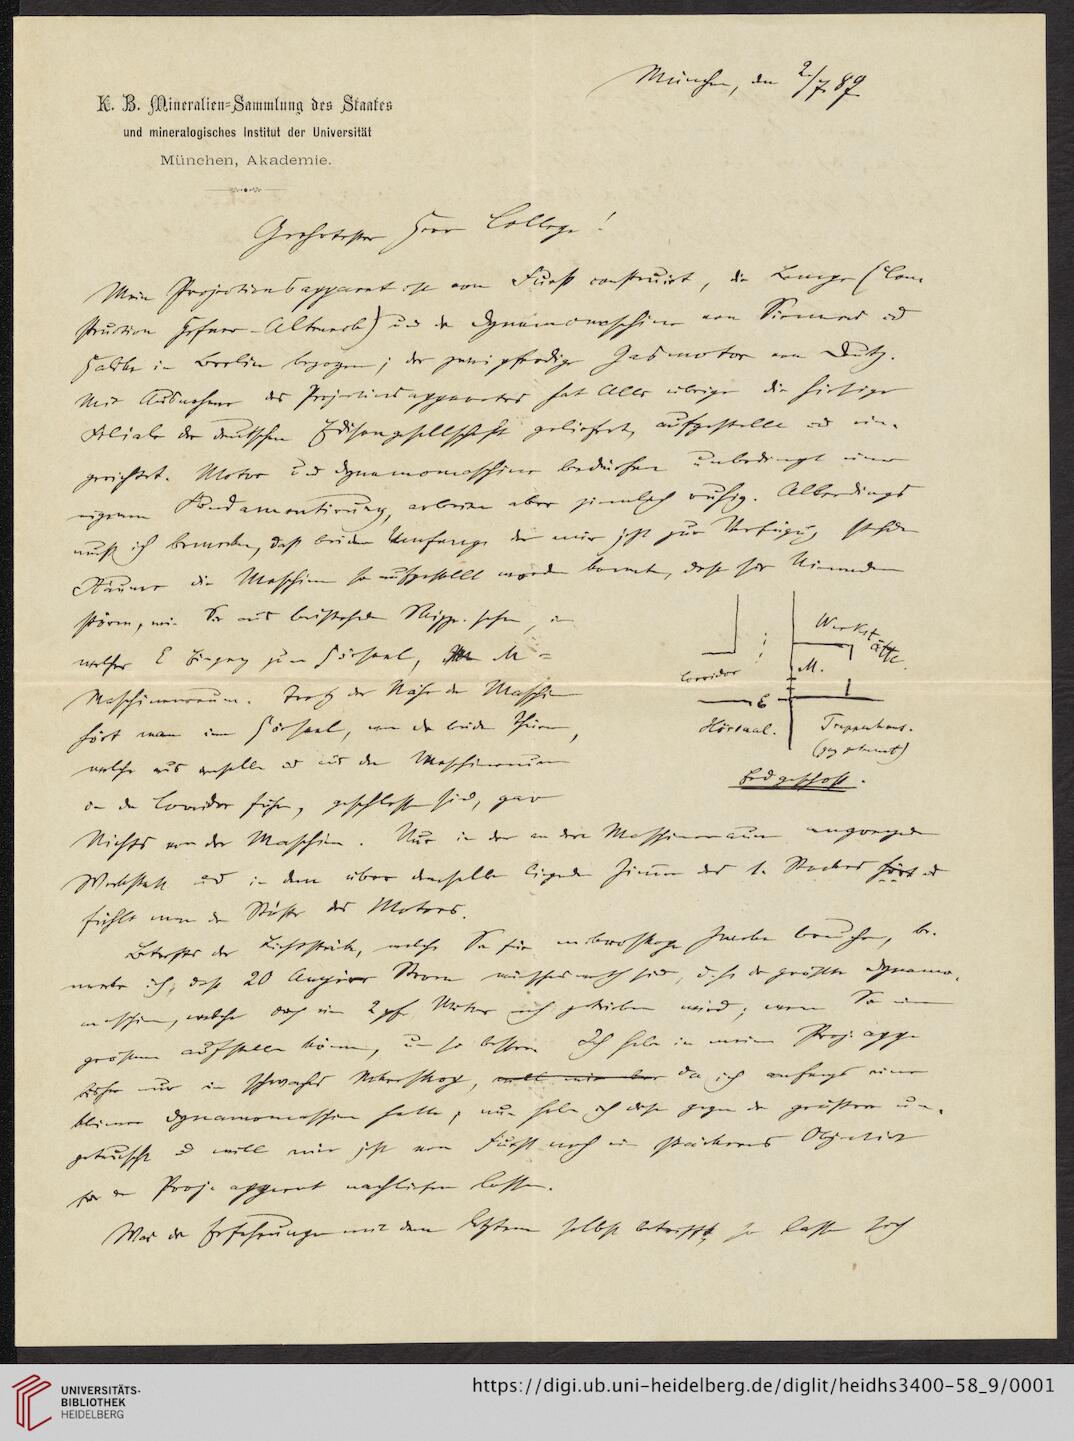 München, den 2./7. 89
K. B. Mineralien-Sammlung des Staates
und mineralogisches Institut der Universität
München, Akademie.
Geehrtester Herr College!
Mein Projectionsapparat ist von Fuess construirt, die Lampe (Con
struction Hefner-Alteneck) und die Dynamomaschine von Siemens und
Halske in Berlin bezogen; der zweipferdige Gasmotor von Deutz.
Mit Ausnahme des Projectionsapparates hat Alles übrige die hiesige
Filiale der deutschen Edisongesellschaft geliefert, aufgestellt und ein-
gerichtet. Motor und Dynamomaschine bedürfen unbedingt einer
eigenen Fundamentirung, arbeiten aber ziemlich ruhig. Allerdings
muß ich bemerken, daß bei dem Umfange der mir jetzt zur Verfügung stehenden
Räume die Maschine so aufgestellt werden konnte, daß sie Niemanden
stören, wie Sie aus beistehender Skizze sehen, in
welcher E Eingang zum Hörsaal, M =
Maschinenraum. Trotz der Nähe der Maschine
hört man im Hörsaal, wenn die beiden Thüren,
welche aus demselben und aus dem Maschinenraum
in den Corridor führen, geschlossen sind, gar
Nichts von der Maschine. Nur in der an den Maschinenraum angrenzenden
Werkstatt und in dem über derselben liegenden Zimmer des 1. Stockes hört und
fühlt man die Stöße des Motors.
Werkstätte.
Corridor
M.
E
Hörsaal.
Treppenhaus.
(gez. getrennt)
Erdgeschoß.
Betreffs der Lichtstärke, welche Sie für mikroskop. Zwecke brauchen, be-
merke ich, daß 20 Ampères Strom wünschenswerth sind, d. h. die größte Dynamo-
maschine, welche durch einen 2pf. Motor noch getrieben wird; wenn Sie eine
größere aufstellen können, um so besser. Ich habe in meinem Proj. app.
bisher nur ein schwaches Mikroskop, da ich anfangs eine
kleinere Dynamomaschine hatte; nun habe ich diese gegen die größere um-
getauscht und will mir jetzt von Fuess noch ein stärkeres Objectiv
für den Proj. apparat nachliefern lassen.
Was die Erfahrungen mit dem letzteren selbst betrifft, so lassen sich
UNIVERSITÄTS-
BIBLIOTHEK
HEIDELBERG
https://digi.ub.uni-heidelberg.de/diglit/heidhs3400-58_9/0001